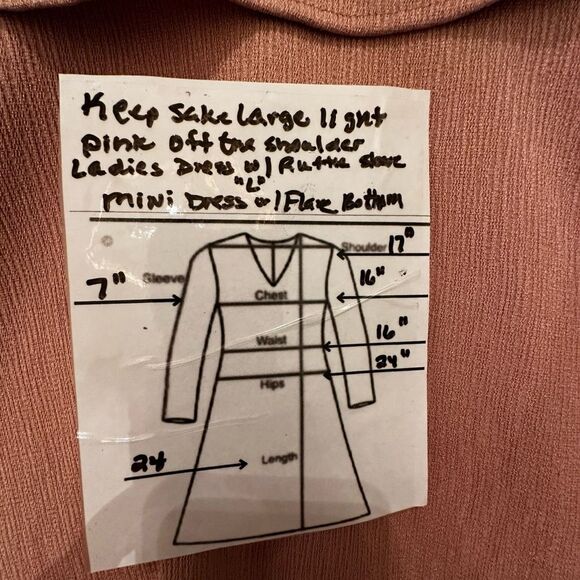 Keep sake Large light
pink off the shoulder
Ladies Dress w/ Ruffle Sleeve
"L"
mini Dress w/ Flare Bottom
Shoulder 17"
Sleeve
7"
16"
Chest
16"
Waist
24"
Hips
24
Length